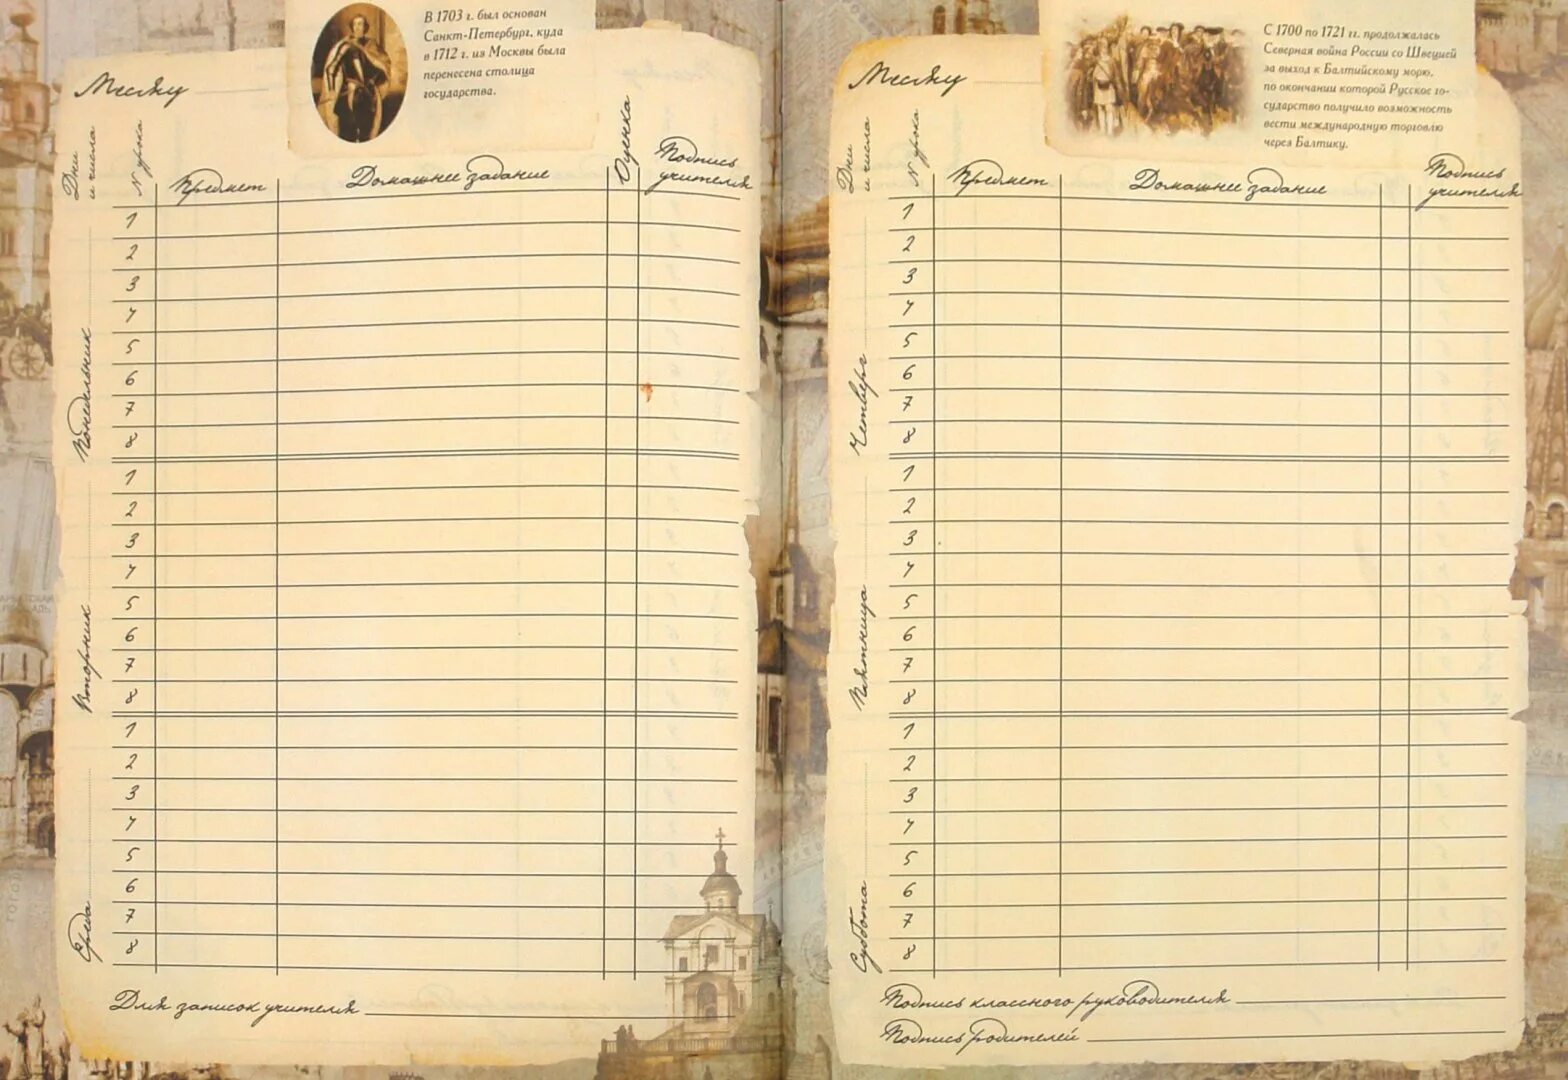 В 1703 г. был основан
Санкт-Петербург, куда
в 1712 г. из Москвы была
перенесена столица
государства.
Месяц
Дни
и числа
№ урока
Предмет
Домашнее задание
Оценка
Подпись
учителя
Понедельник
1
2
3
4
5
6
7
8
Вторник
1
2
3
4
5
6
7
8
Среда
1
2
3
4
5
6
7
8
Для записок учителя
С 1700 по 1721 гг. продолжалась
Северная война России со Швецией
за выход к Балтийскому морю,
по окончании которой Русское го-
сударство получило возможность
вести международную торговлю
через Балтику.
Месяц
Дни
и числа
№ урока
Предмет
Домашнее задание
Подпись
учителя
Четверг
1
2
3
4
5
6
7
8
Пятница
1
2
3
4
5
6
7
8
Суббота
1
2
3
4
5
6
7
8
Подпись классного руководителя
Подпись родителей